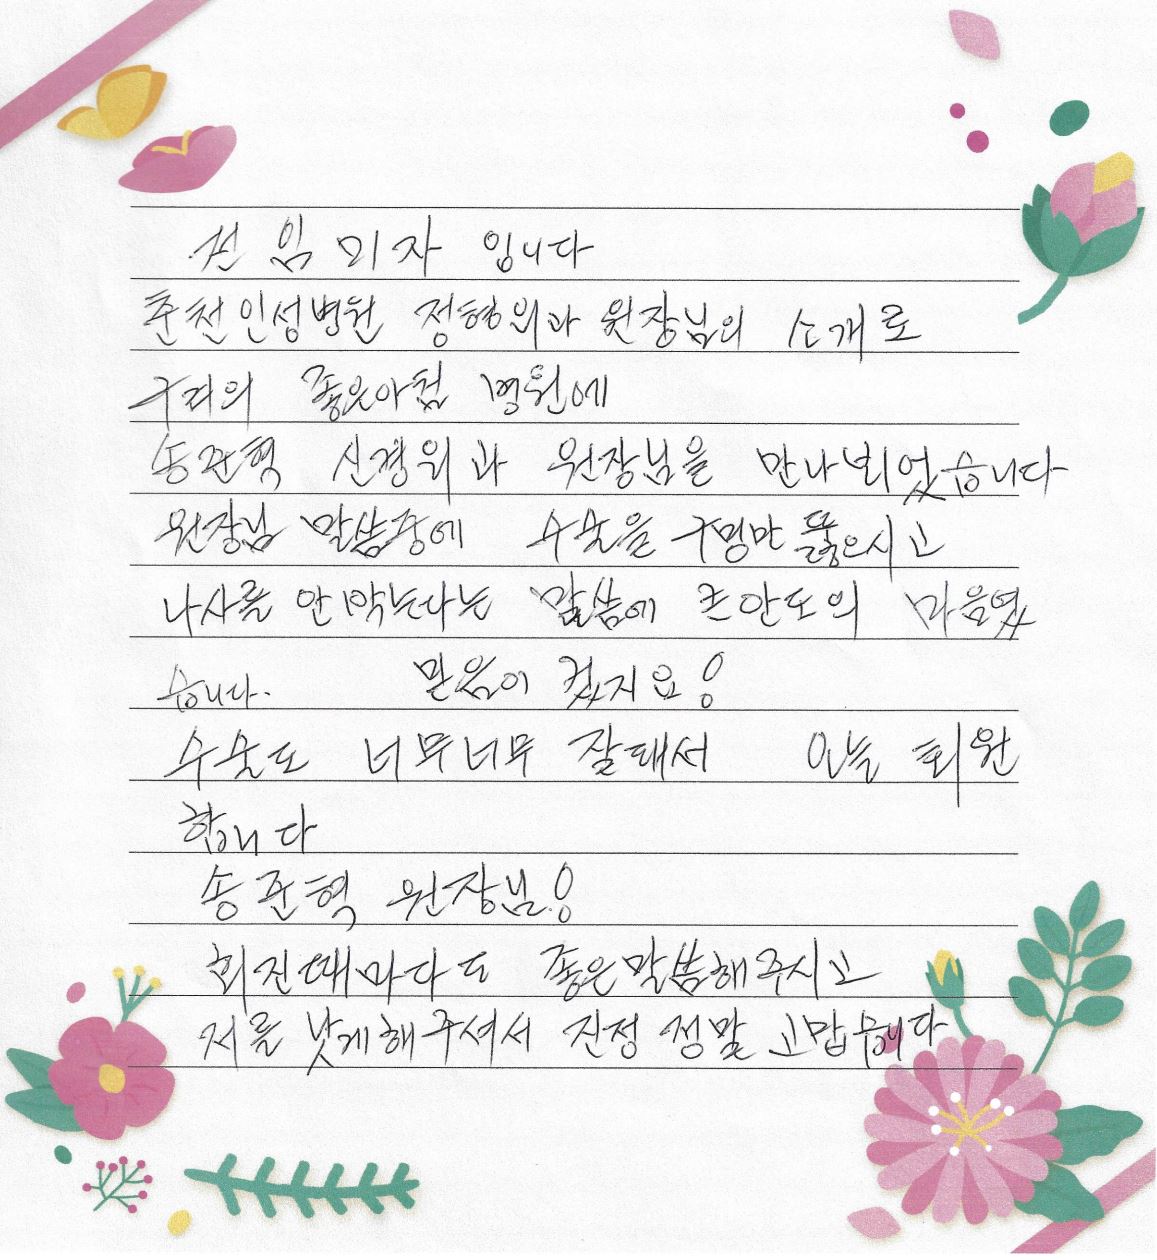 전 임미자 입니다
춘천인성병원 정형외과 원장님의 소개로
구리의 좋은아침 병원에
송준혁 신경외과 원장님을 만나뵈었습니다
원장님 말씀중에 수술을 구멍만 뚫으시고
나사를 안박는다는 말씀에 큰안도의 마음였
습니다. 믿음이 컸지요!
수술도 너무너무 잘돼서 오늘 퇴원
합니다
송준혁 원장님!
회진때마다도 좋은말씀해주시고
저를 낫게해주셔서 진정 정말 고맙습니다